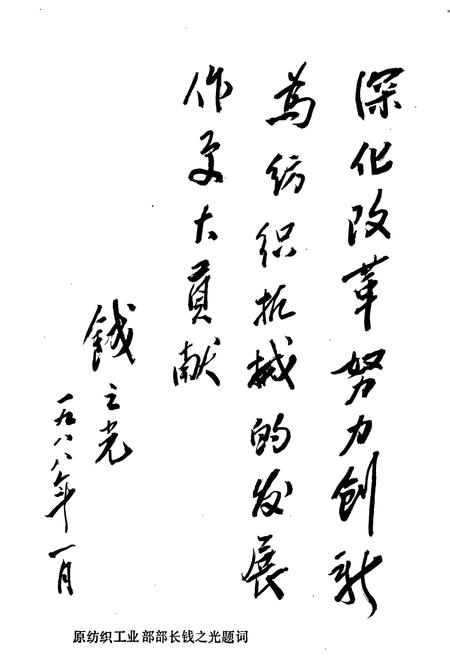 深化改革努力创新
为纺织机械的发展
作更大贡献
钱之光
一九八八年一月
原纺织工业部部长钱之光题词